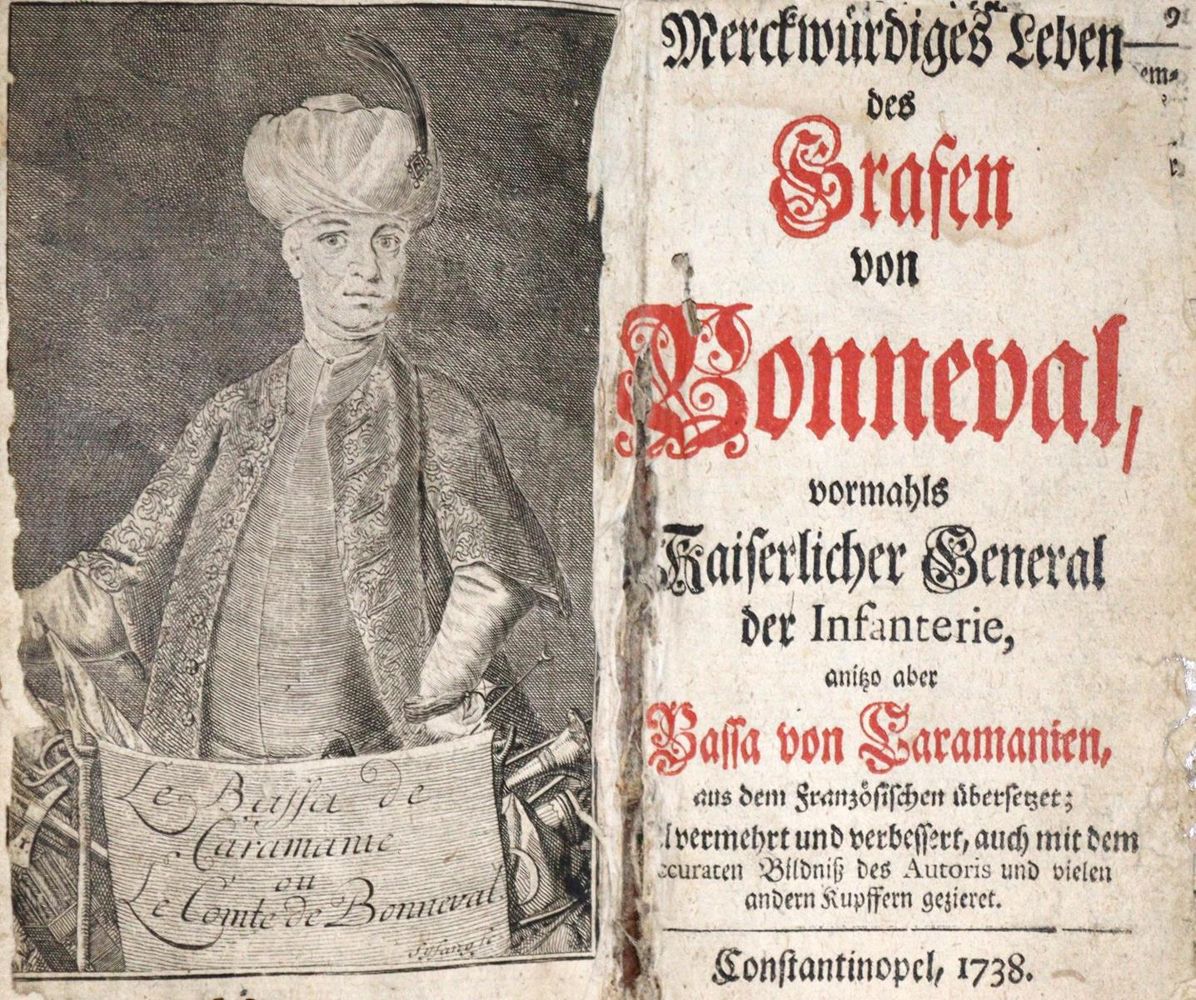 Le Bassa de
Caramanie
ou
Le Comte de Bonneval
Merckwürdiges Leben
des
Grafen
von
Bonneval,
vormahls
Kaiserlicher General
der Infanterie,
anitzo aber
Bassa von Caramanien,
aus dem Französischen übersetzet;
vermehrt und verbessert, auch mit dem
ccuraten Bildniß des Autoris und vielen
andern Kupffern gezieret.
Constantinopel, 1738.